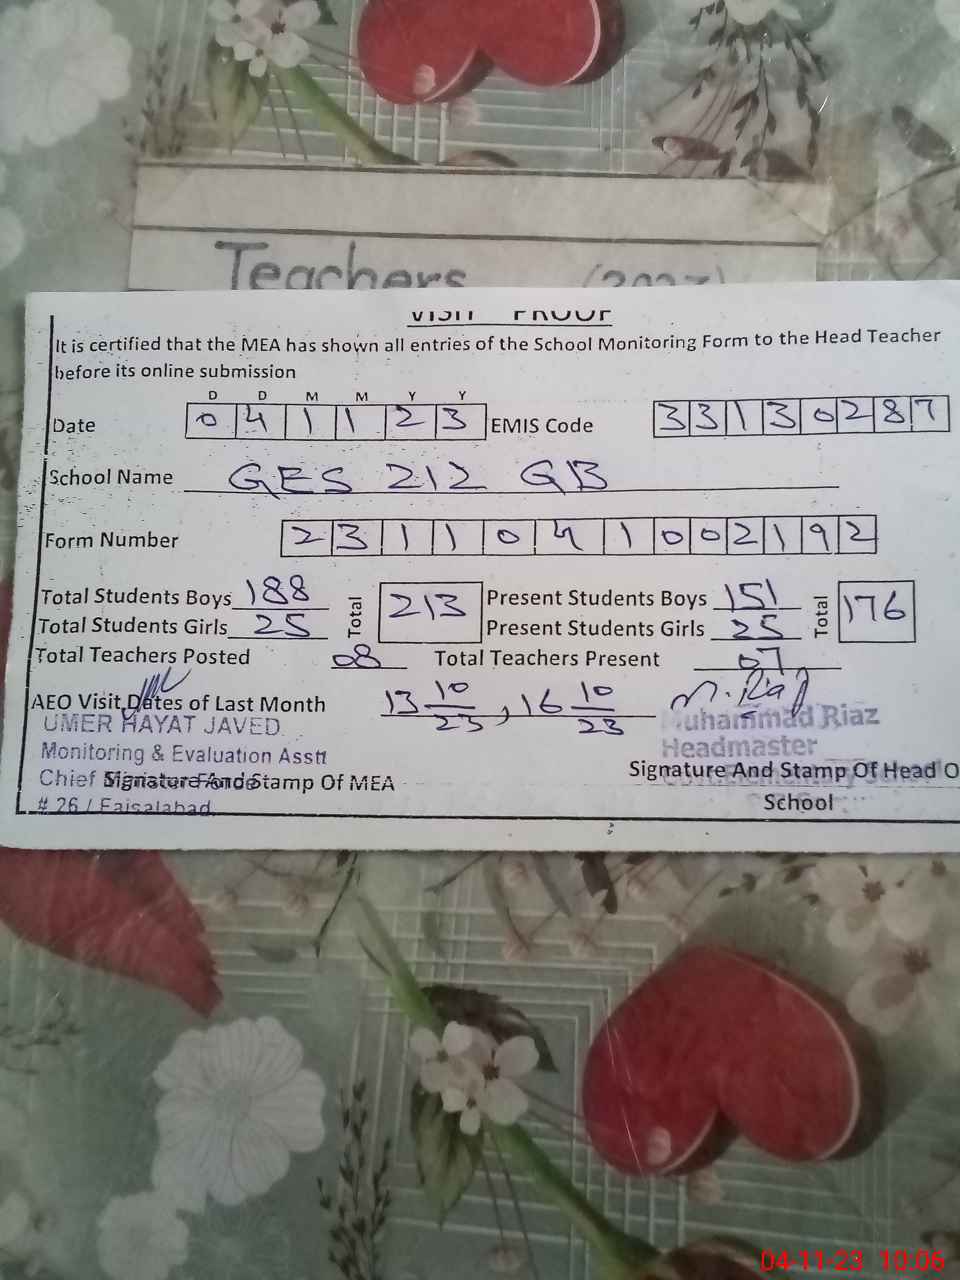 Teachers (2023)
VISIT PROOF
It is certified that the MEA has shown all entries of the School Monitoring Form to the Head Teacher
before its online submission
D D M M Y Y
Date 0 4 1 1 2 3 EMIS Code 3 3 1 3 0 2 8 7
School Name GES 212 GB
Form Number 2 3 1 1 0 4 1 0 0 2 1 9 2
Total Students Boys 188 Total 213 Present Students Boys 151 Total 176
Total Students Girls 25 Present Students Girls 25
Total Teachers Posted 08 Total Teachers Present 07
AEO Visit Dates of Last Month 13 10/23, 16 10/23 M. Riaz
UMER HAYAT JAVED Muhammad Riaz
Monitoring & Evaluation Asstt Headmaster
Chief
Signature And Stamp Of MEA Signature And Stamp Of Head O
# 26 / Faisalabad. School
04-11-23 10:06